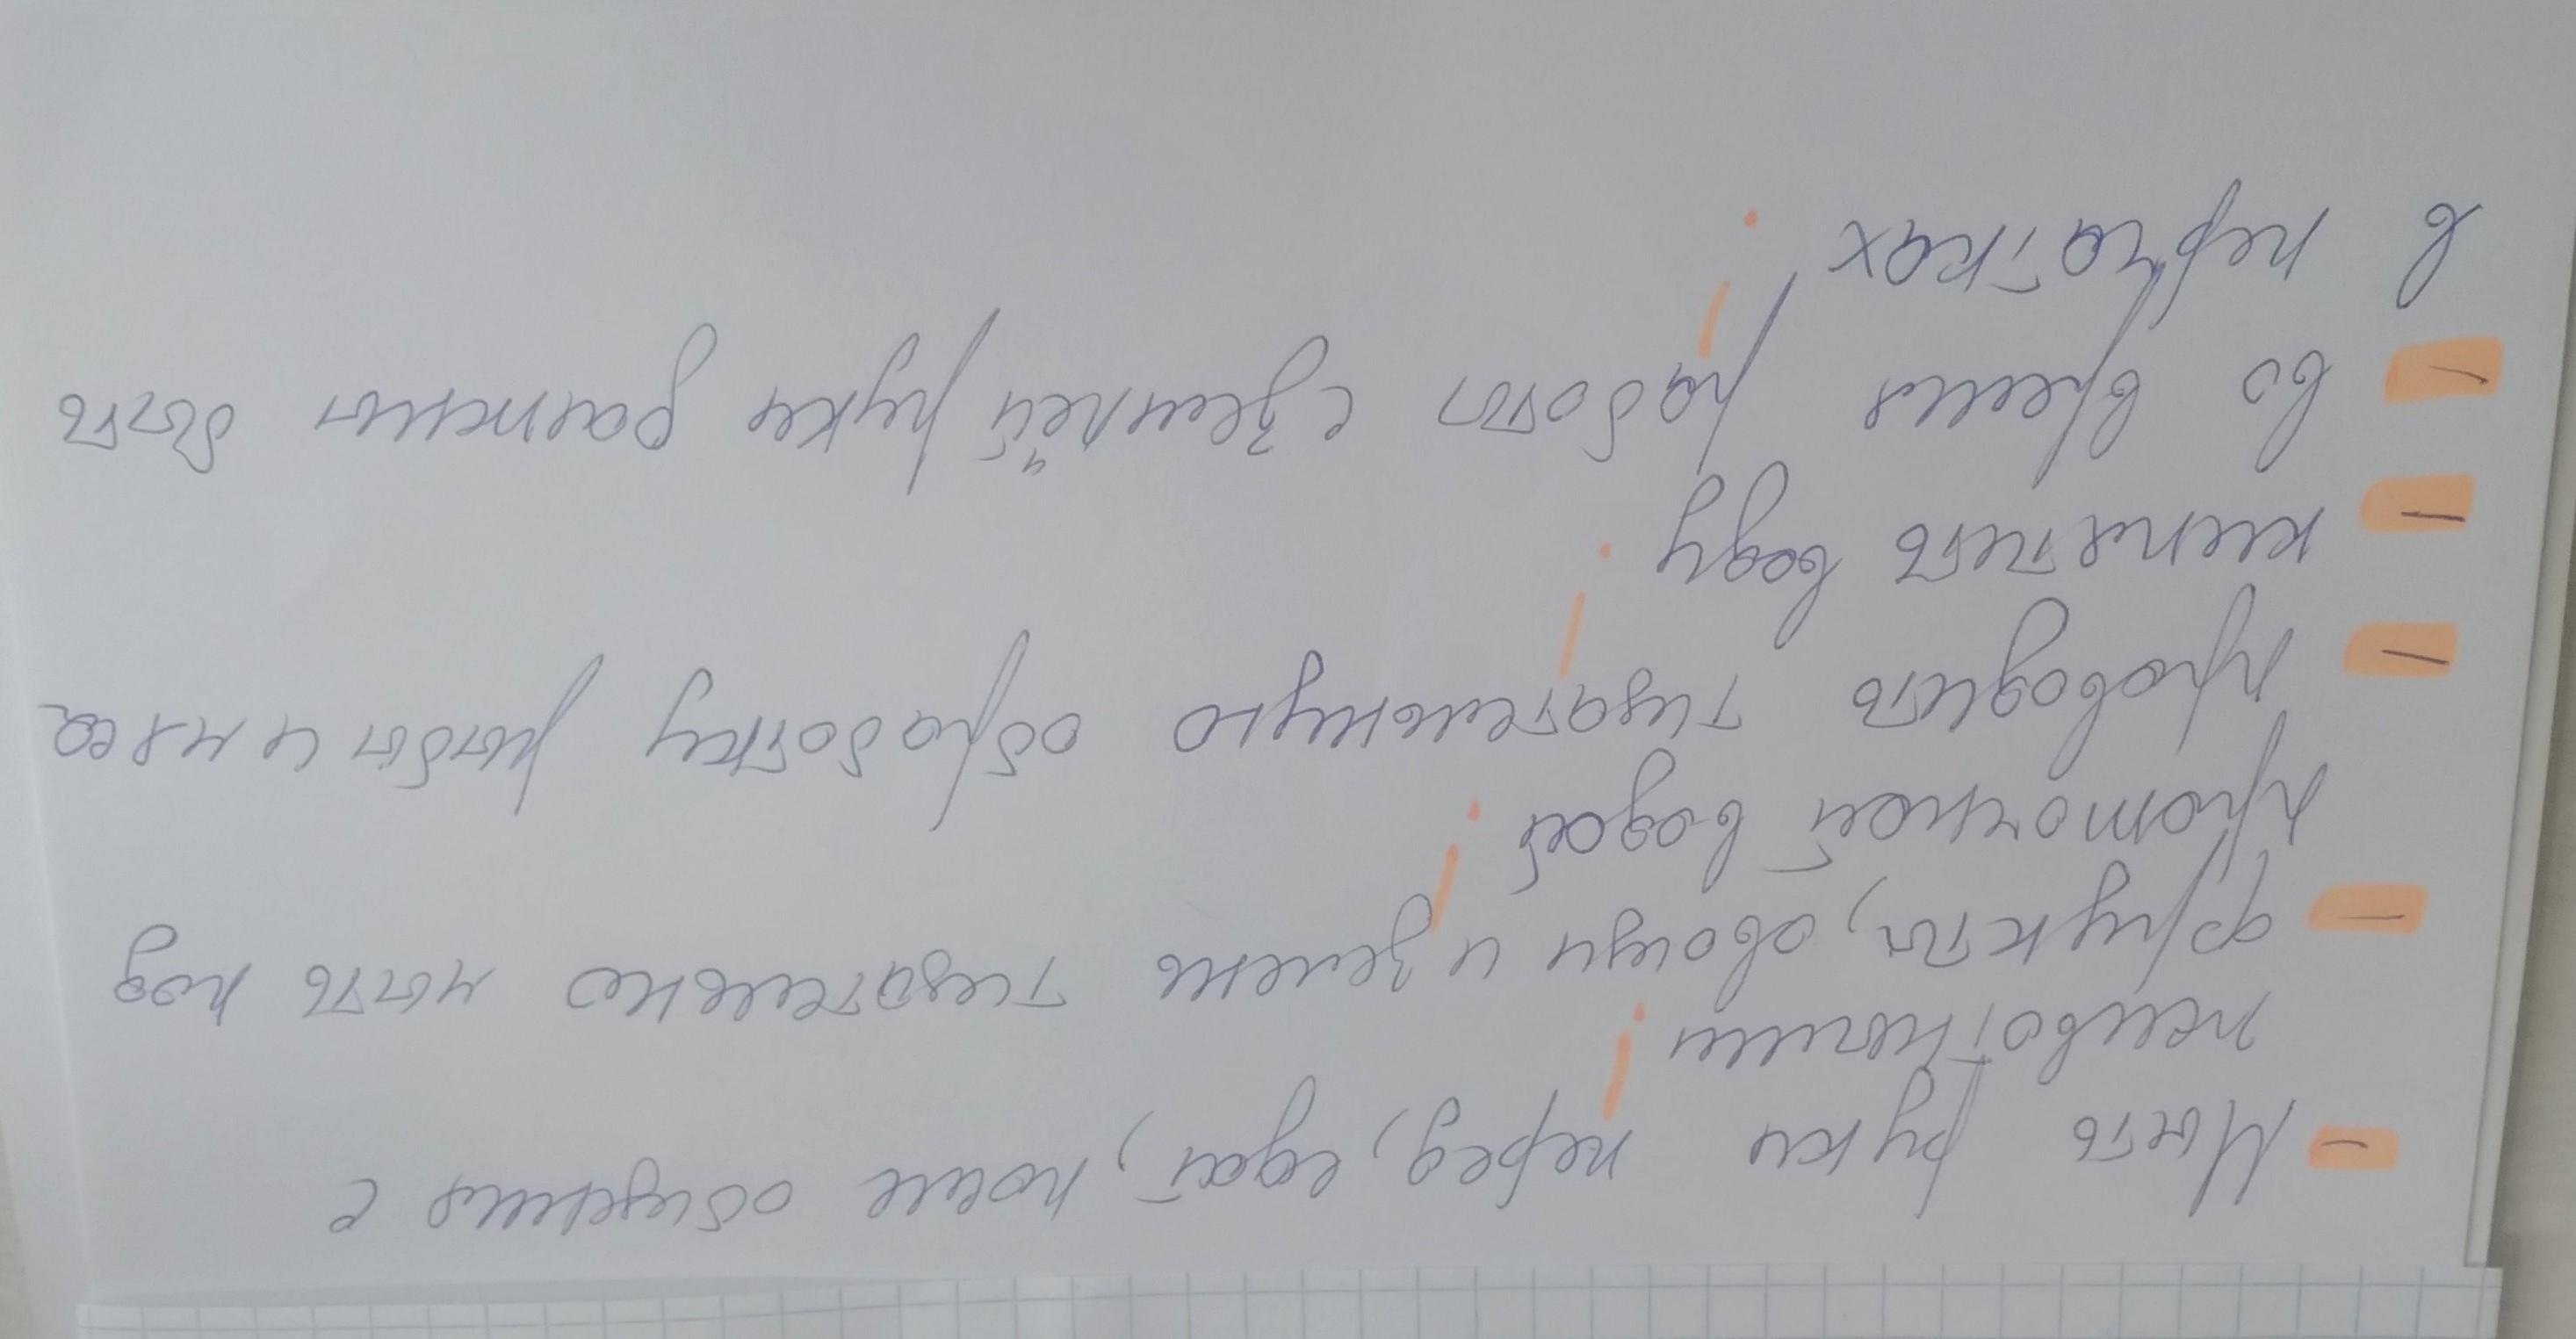 - Мыть руки перед, едой, после общения с
животными!
- фрукты, овощи и зелень тщательно мыть под
проточной водой!
- проводить тщательную обработку рыбы и мяса
- кипятить воду!
- во время работы с землёй руки должны быть
в перчатках!